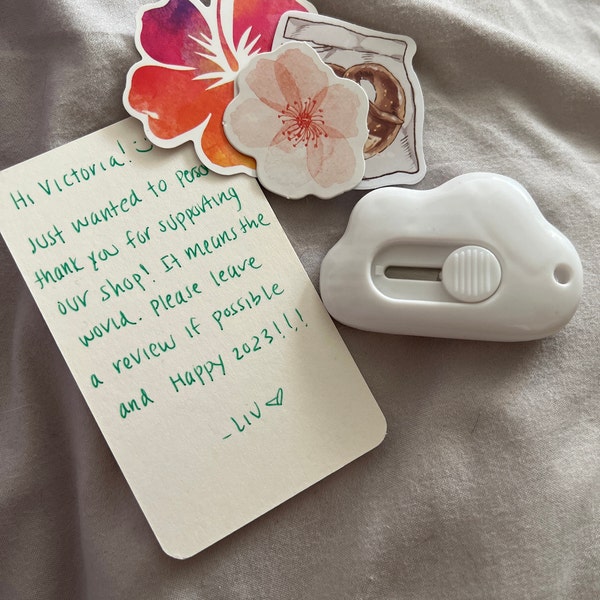 Hi Victoria! :)
Just wanted to
thank you for supporting
our shop! It means the
world. Please leave
a review if possible
and Happy 2023!!!!
-LIV ♡